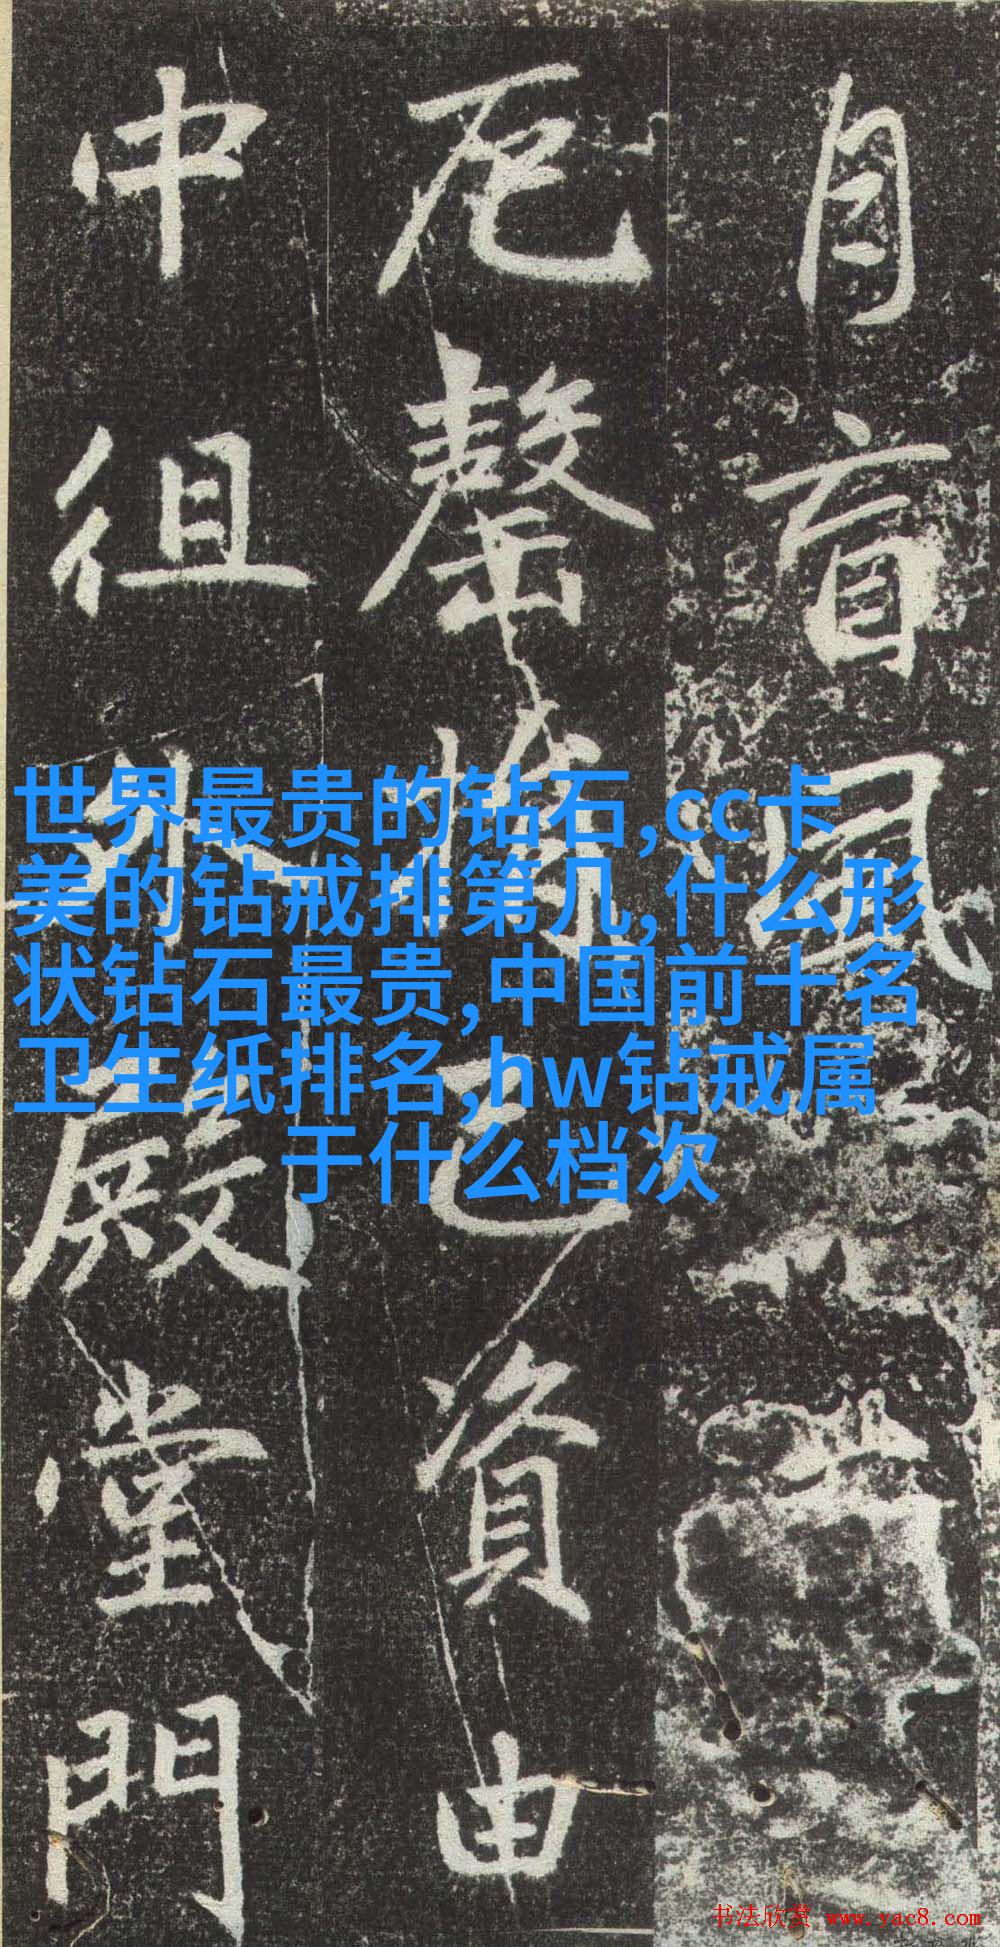 自盲風
卮罄
已資由
中徂
殿堂門
世界最贵的钻石,cc卡
美的钻戒排第几,什么形
状钻石最贵,中国前十名
卫生纸排名,hw钻戒属
于什么档次
书法欣赏 www.yac8.com